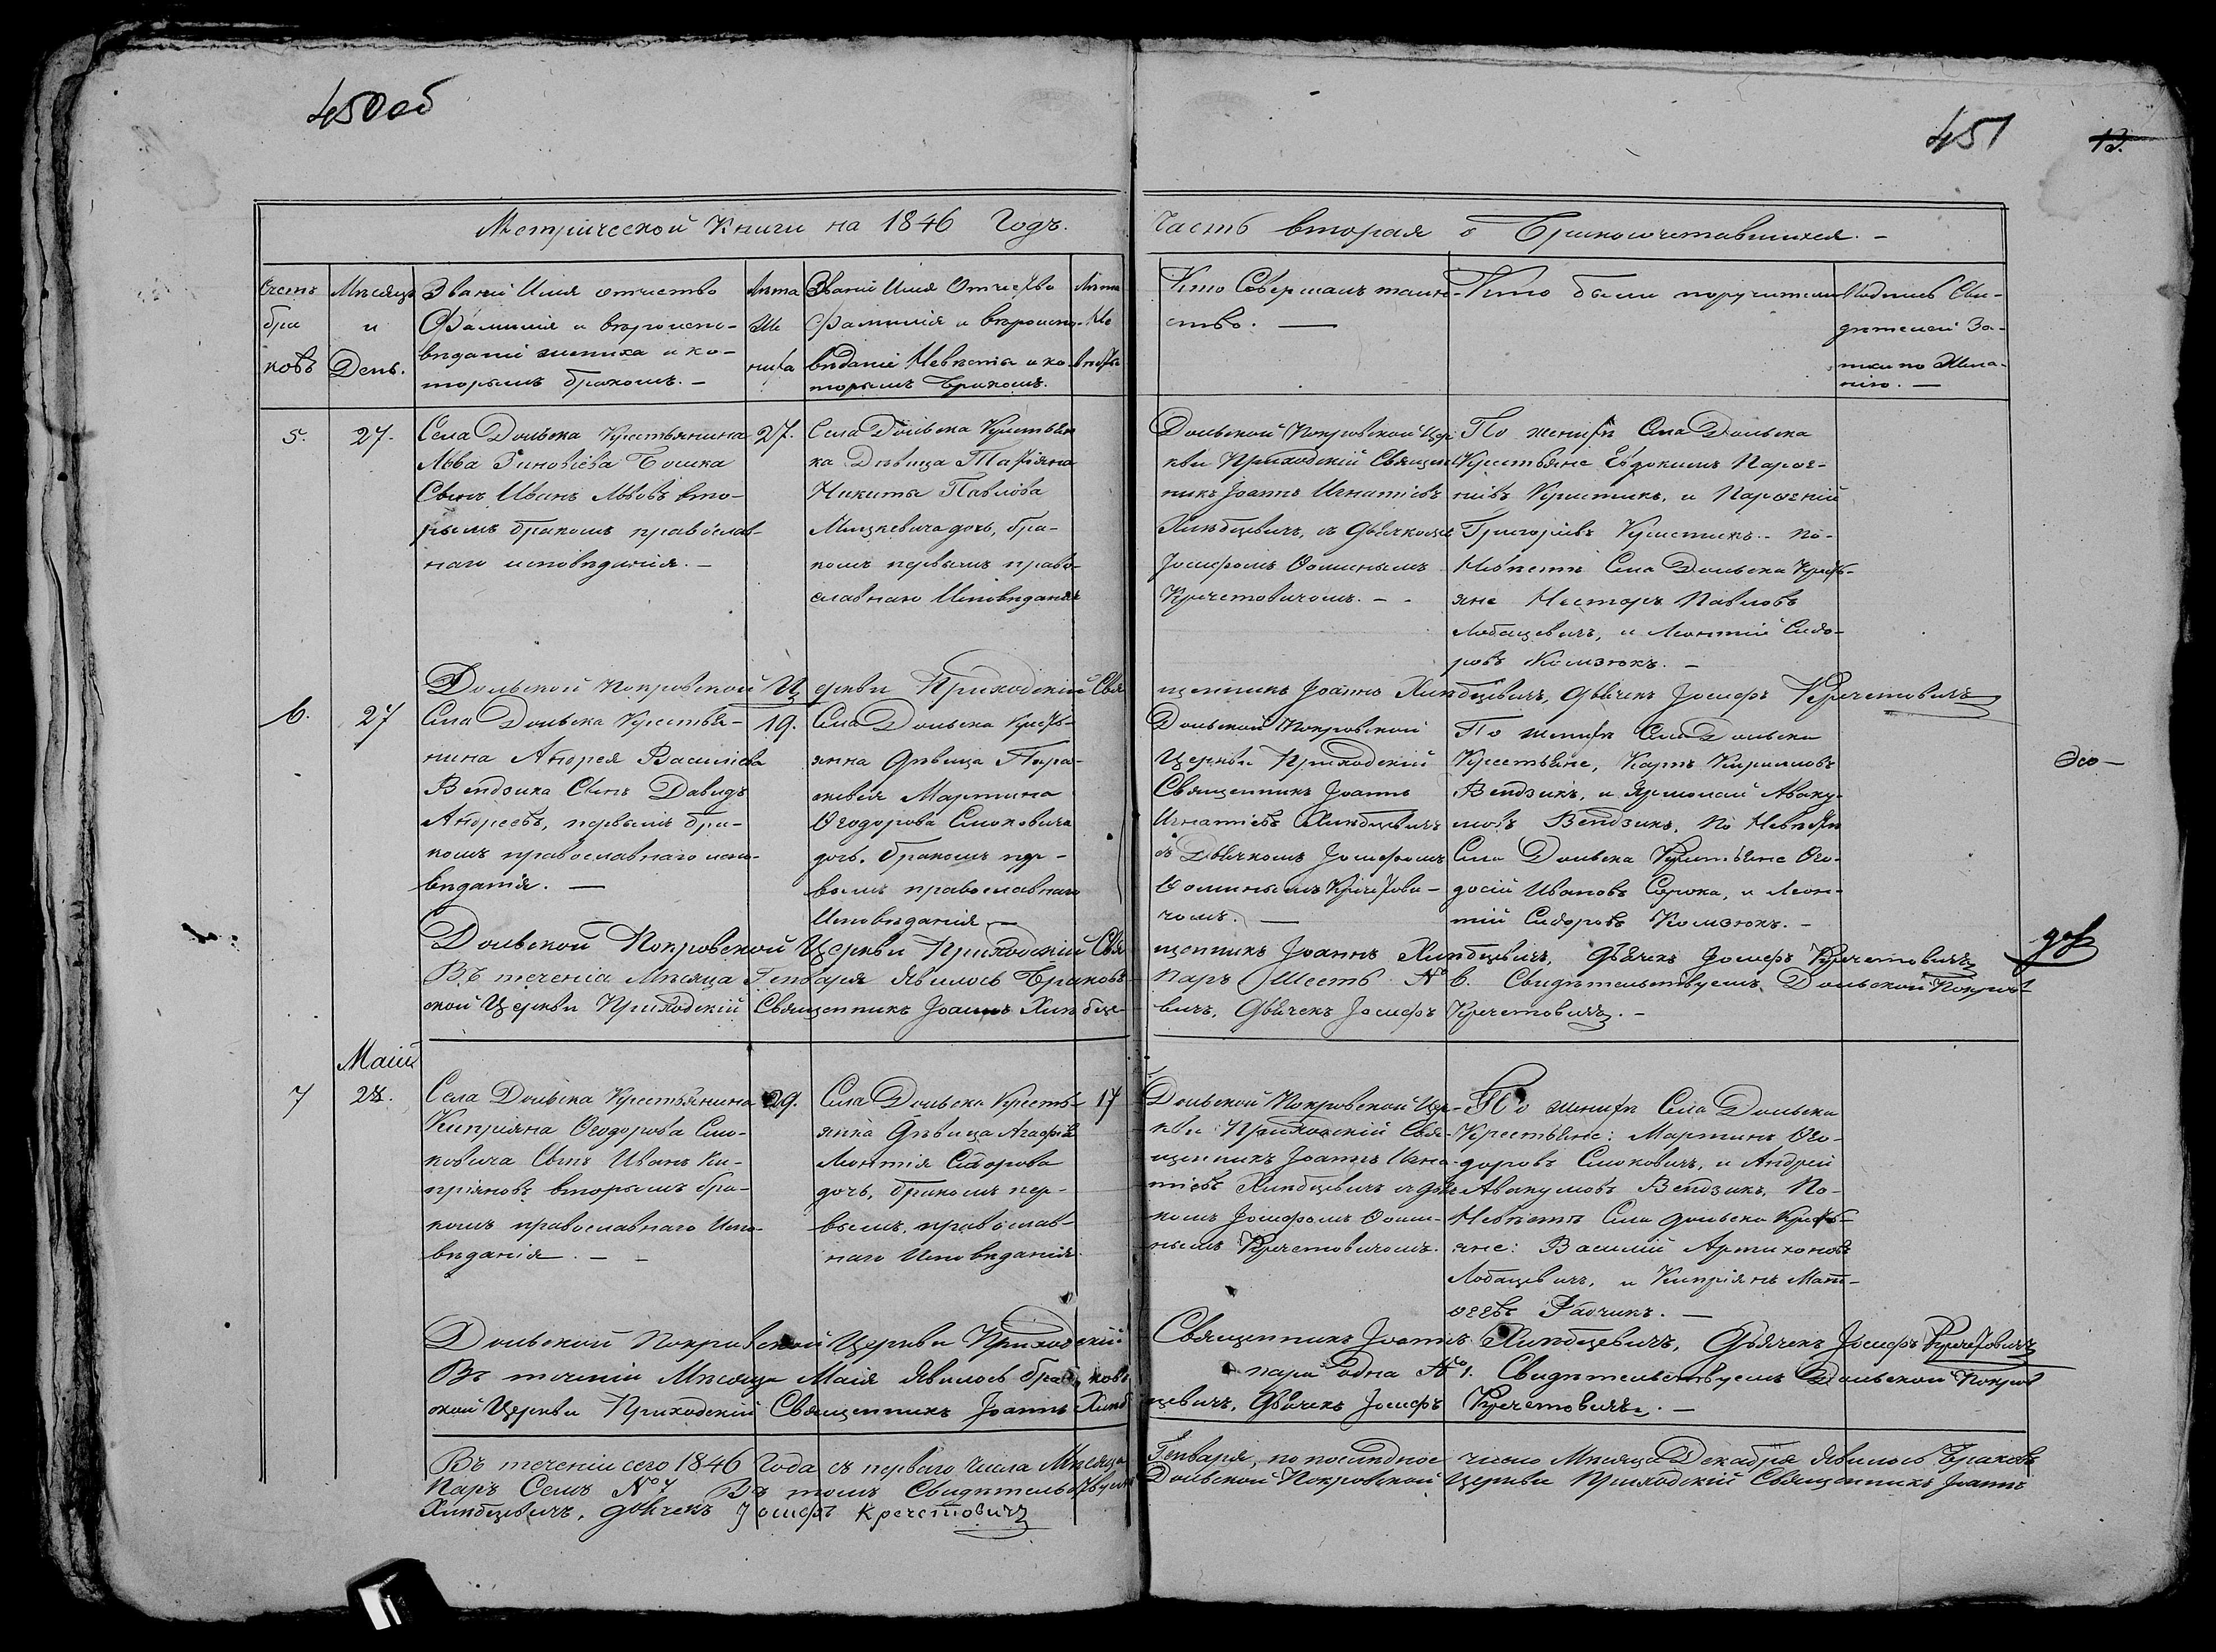 450об
451
12.
Метрической Книги на 1846 Годъ.
Часть вторая о Бракосочетавшихся. –
Счетъ бра ковъ
Мѣсяцъ и День.
Званіе Имя отчество
Фамилія и вѣроиспо-
вѣданіе жениха и ко-
торымъ бракомъ. –
Лѣта Же ниха
Званіе Имя Отчество
Фамилія и вѣроиспо-
вѣданіе Невѣсты и ко-
торымъ Бракомъ.
Лѣта Не вѣсты
Кто Совершалъ таин-
ство. —
Кто были поручители
Подпись Сви-
дѣтелей За-
писи по Жела-
нію. —
5.
27.
Села Дольска Крестьянина
Льва Зиновіева Бошка
Сынъ Иванъ Львовъ вто-
рымъ бракомъ православ-
наго исповѣданія. –
27.
Села Дольска Крестьян
ка Дѣвица Татіяна
Никиты Павлова
Мицкевича дочь, бра-
комъ первымъ право-
славнаго Исповѣданія
Дольской Покровской Цер
кви Приходскій Священ
никъ Іоаннъ Игнатіевъ
Хиндцевичъ, съ Дьячкомъ
Іосифомъ Фоминымъ
Кречетовичомъ. –
По женихѣ Села Дольска
Крестьяне Евдокимъ
и
По-
Невѣстѣ Села Дольска Кресть-
яне Несторъ Павловъ
Лобацевичъ, и Леонтій Сидо-
ровъ Комзюкъ. –
Дольской Покровской Церкви Приходскій Свя
щенникъ Іоаннъ Хиндцевичъ, Дьячекъ Іосифъ Кречетовичъ
6.
27
Села Дольска Крестья-
нина Андрея Василіева
Вендзика Сынъ Давидъ
Андреевъ, первымъ бра-
комъ православнаго испо-
вѣданія. —
19.
Села Дольска Кресть-
янка Дѣвица Пара-
скевія Мартина
Ѳеодорова Смоковича
дочь, бракомъ пер-
вымъ православнаго
Исповѣданія —
Дольской Покровской
Церкви Приходскій
Священникъ Іоаннъ
Игнатіевъ Хиндцевичъ
съ Дьячкомъ Іосифомъ
Фоминымъ Кречетови-
чомъ. —
По женихѣ Села Дольска
Крестьяне, Карпъ Кириловъ
Вендзикъ, и Ярмолай Аваку-
мовъ Вендзикъ, По Невѣстѣ
Села Дольска Крестьяне Ѳео-
досій Ивановъ Сорока, и Леон-
тій Сидоровъ Комзюкъ. –
Дольской Покровской Церкви Приходскій Свя
щенникъ Іоаннъ Хиндцевичъ, Дьячекъ Іосифъ Кречетовичъ
Въ теченіа Мѣсяца Генваря явилось Браковъ
Паръ Шесть № 6. Свидѣтельствуемъ Дольской Покров-
ской Церкви Приходскій Священникъ Іоаннъ Хиндце-
вичъ, Дьячекъ Іосифъ Кречетовичъ. –
Маій
7
28.
Села Дольска Крестьянина
Кипріяна Ѳеодорова Смо-
ковича Сынъ Иванъ Ки-
пріяновъ вторымъ бра-
комъ православнаго Испо-
вѣданія. – –
29.
Села Дольска Кресть-
янка Дѣвица Агафія
Леонтія Сидорова
дочь, бракомъ пер-
вымъ, православ-
наго Исповѣданія.
17
Дольской Покровской Цер-
кви Приходскій Свя-
щенникъ Іоаннъ Игна-
тіевъ Хиндцевичъ съ Дьяч
комъ Іосифомъ Фоми-
нымъ Кречетовичомъ.
По женихѣ Села Дольска
Крестьяне: Мартинъ Ѳео-
доровъ Смоковичъ, и Андрей
Авакумовъ Вендзикъ, По-
Невѣстѣ Села Дольска Кресть-
яне: Василій Артихоновъ
Лобацевичъ, и Кипріянъ Мат-
ѳеевъ
Дольской Покровской Церкви Приходскій
Священникъ Іоаннъ Хиндцевичъ, Дьячекъ Іосифъ Кречетовичъ
Въ теченіи Мѣсяца Маія явилось браковъ
пара одна № 1. Свидѣтельствуемъ Дольской Покров
ской Церкви Приходскій Священникъ Іоаннъ Хинд
цевичъ, Дьячекъ Іосифъ Кречетовичъ. –
Въ теченіи сего 1846 Года съ перваго Числа Мѣсяца
Генваря, по послѣдное число Мѣсяца Декабря явилось Браковъ
Паръ Семь № 7 Въ томъ Свидѣтельствуемъ
Дольской Покровской Церкви Приходскій Священникъ Іоаннъ
Хиндцевичъ, Дьячекъ Іосифъ Кречетовичъ